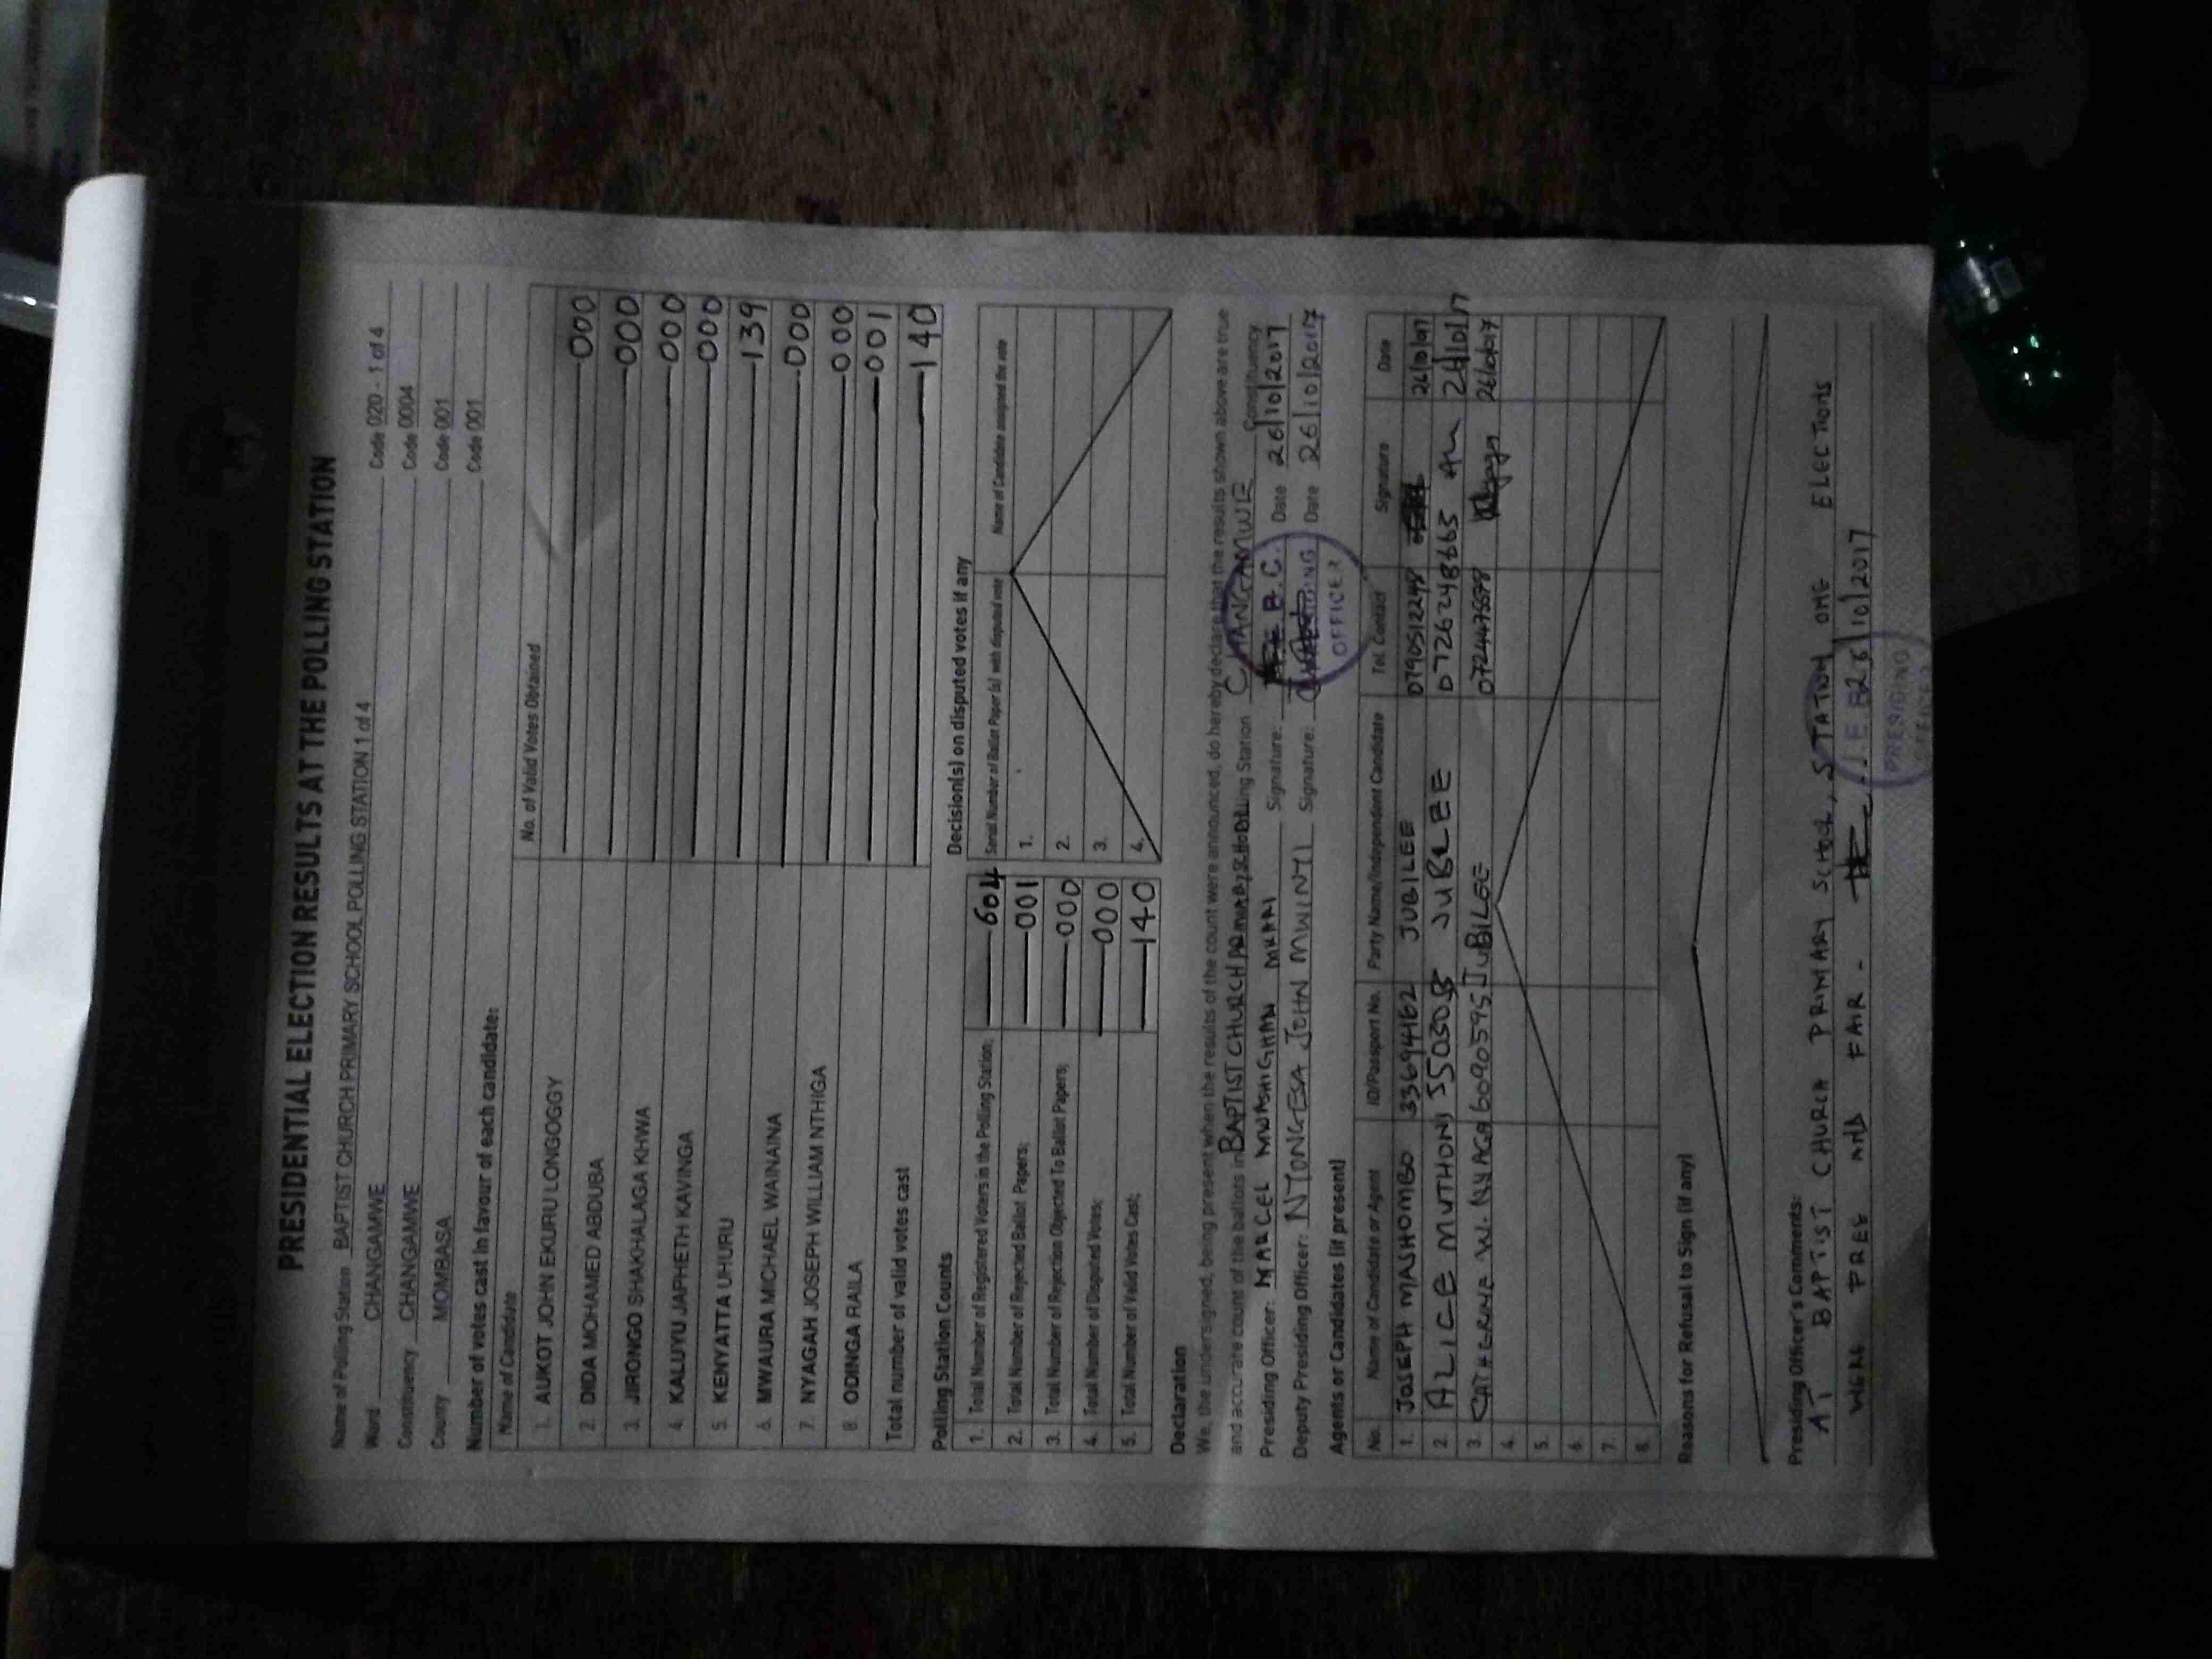 PRESIDENTIAL ELECTION RESULTS AT THE POLLING STATION
Name of Polling Station BAPTIST CHURCH PRIMARY SCHOOL POLLING STATION 1 of 4 Code 020 - 1 of 4
Ward CHANGAMWE Code 0004
Constituency CHANGAMWE Code 001
County MOMBASA Code 001
Number of votes cast in favour of each candidate:
Name of Candidate No. of Valid Votes Obtained
1. AUKOT JOHN EKURU LONGOGGY 000
2. DIDA MOHAMED ABDUBA 000
3. JIRONGO SHAKHALAGA KHWA 000
4. KALUYU JAPHETH KAVINGA 000
5. KENYATTA UHURU 139
6. MWAURA MICHAEL WAINAINA 000
7. NYAGAH JOSEPH WILLIAM NTHIGA 000
8. ODINGA RAILA 001
Total number of valid votes cast 140
Polling Station Counts
1. Total Number of Registered Voters in the Polling Station; 604
2. Total Number of Rejected Ballot Papers; 001
3. Total Number of Rejection Objected To Ballot Papers; 000
4. Total Number of Disputed Votes; 000
5. Total Number of Valid Votes Cast; 140
Decision(s) on disputed votes if any
Serial Number of Ballot Paper(s) with disputed vote Name of Candidate assigned the vote
1.
2.
3.
4.
Declaration
We, the undersigned, being present when the results of the count were announced, do hereby declare that the results shown above are true
and accurate count of the ballots in BAPTIST CHURCH PRIMARY SCHOOL Polling Station CHANGAMWE Constituency
Presiding Officer: MARCEL MWASHIGHADI Signature: Date 26/10/2017
Deputy Presiding Officer: NTONGESA JOHN MWINYI Signature: Date 26/10/2017
PRESIDING
OFFICER
Agents or Candidates (if present)
No. Name of Candidate or Agent ID/Passport No. Party Name/Independent Candidate Tel. Contact Signature Date
1. JOSEPH MASHOMBO 33694462 JUBILEE 0790512248 26/10/017
2. ALICE MUTHONI JUBLEE 26/10/17
3. CATHERINE W. NYAGA 6090595 JUBILEE 26/10/017
4.
5.
6.
7.
8.
Reasons for Refusal to Sign (if any)
Presiding Officer's Comments:
AT BAPTIST CHURCH PRIMARY SCHOOL, STATION ONE ELECTIONS
WERE FREE AND FAIR - 26/10/2017
PRESIDING
OFFICER